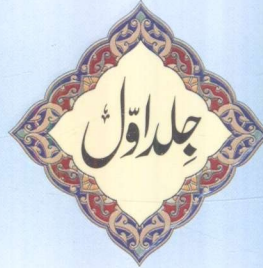 جِلد اوّل